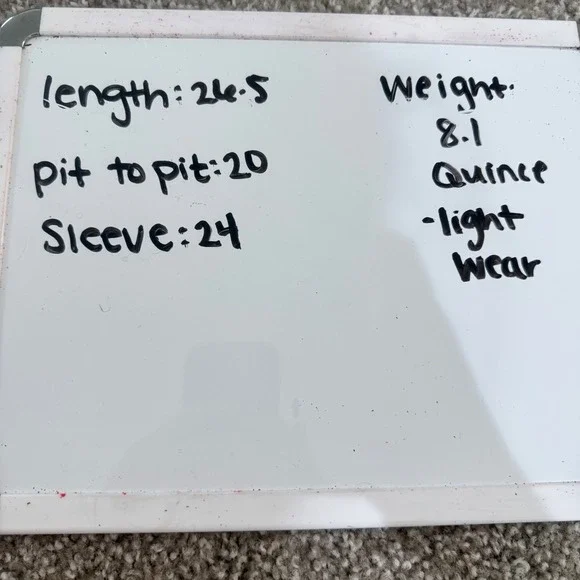 length: 26.5
pit to pit: 20
Sleeve: 24
Weight.
8.1
Quince
-light
wear